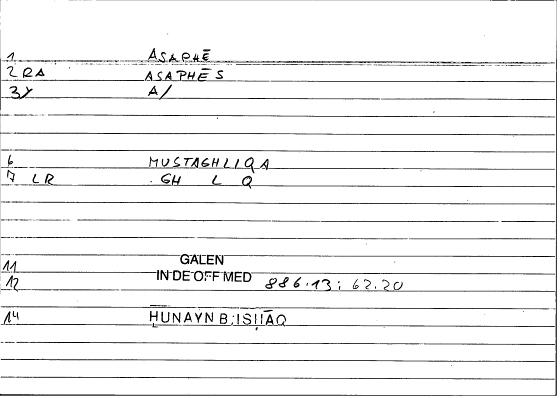 1 ASAPHĒ
2 RA ASAPHĒS
3Y A/
6 MUSTAGHLIQA
7 LR GH L Q
11 GALEN
12 IN DE OFF MED 886.13; 62.20
14 ḤUNAYN B. ISḤĀQ